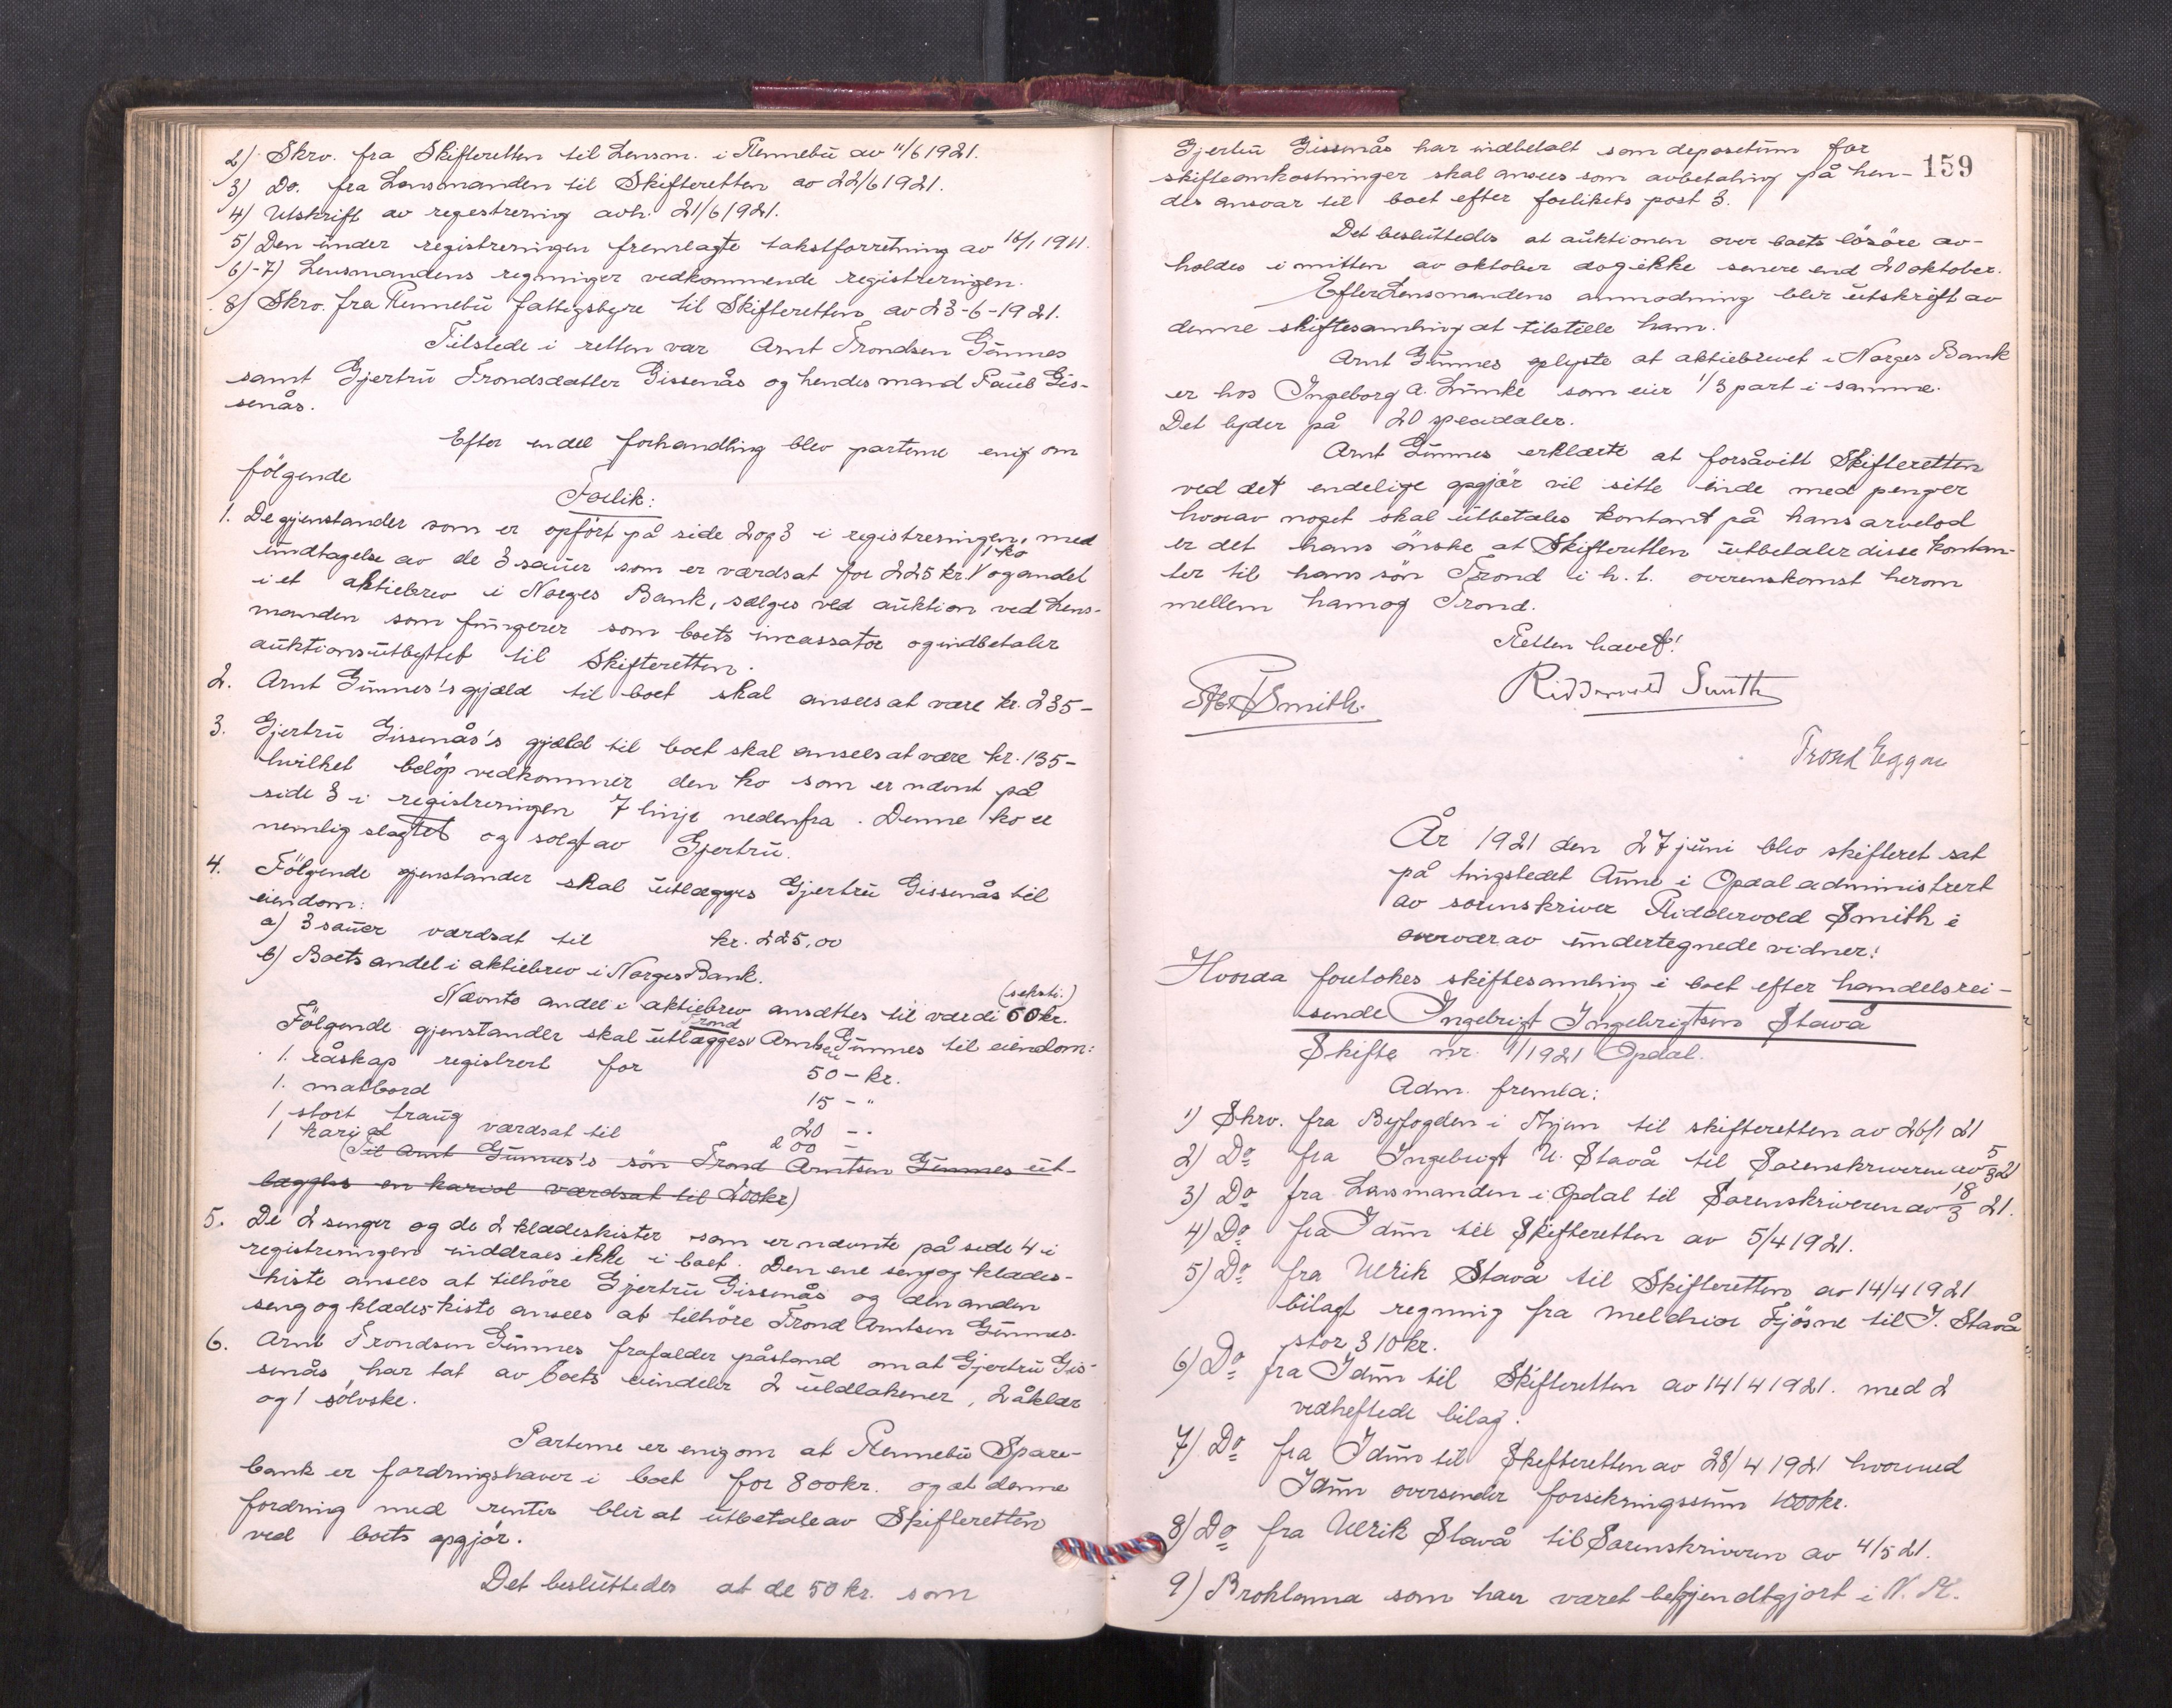 2) Skrv. fra Skifteretten til Lensm. i Rennebu av 11/6 1921.
3) Do. fra Lensmanden til Skifteretten av 22/6 1921.
4) Utskrift av registrering avh. 21/6 1921.
5) Den under registreringen fremlagte takstforretning av 16/1 1911.
6)-7) Lensmandens regninger vedkommende registreringen.
8) Skrv. fra Rennebu fattigstyre til Skifteretten av 23-6-1921.
Tilstede i retten var Arnt Trondsen Gunnes
samt Gjertru Trondsdatter Gissenås og hendes mand Paul Gis-
senås.
Efter endel forhandling blev parterne enig om
følgende
Forlik:
1. De gjenstander som er opført på side 2 og 3 i registreringen, med
undtagelse av de 3 sauer som er værdsat for 225 kr. V 1 ko og andel
i et aktiebrev i Norges Bank, sælges ved auktion ved Lens-
manden som fungerer som boets incassator og indbetaler
auktionsutbyttet til Skifteretten.
2. Arnt Gunnes's gjæld til boet skal ansees at være kr. 235-
3. Gjertru Gissenås's gjæld til boet skal ansees at være kr. 135-
hvilket beløp vedkommer den ko som er nævnt på
side 3 i registreringen 7 linje nedenfra. Denne ko er
nemlig slagtet og solgt av Gjertru.
4. Følgende gjenstander skal utlægges Gjertru Gissenås til
eiendom:
a) 3 sauer værdsat til kr. 225,00
b) Boets andel i aktiebrev i Norges Bank.
(seksti.)
Nævnte andel i aktiebrev ansættes til værdi 60 kr.
Trond
Følgende gjenstander skal utlægges V Arntsen Gunnes til eiendom:
1. råskap registrert for 50 - kr.
1. matbord 15 - "
1 stort traug værdsat til 20 - .
1 kariol 200 -
(Til Arnt Gunnes's søn Trond Arntsen Gunnes ut-
lægges en kariol værdsat til 200 kr)
5. De 2 senger og de 2 klædeskister som er nævnte på side 4 i
registreringen inddraes ikke i boet. Den ene seng og klædes-
kiste ansees at tilhøre Gjertru Gissenås og den anden
seng og klædeskiste ansees at tilhøre Trond Arntsen Gunnes.
6. Arnt Trondsen Gunnes frafalder påstand om at Gjertru Gis-
senås har tat av boets eiendeler 2 uldlakener, 2 åklær
og 1 sølvske.
Parterne er enig om at Rennebu Spare-
bank er fordringshaver i boet for 800 kr. og at denne
fordring med renter blir at utbetale av Skifteretten
ved boets opgjør.
Det besluttedes at de 50 kr. som
159
Gjertru Gissenås har indbetalt som depositum for
skifteomkostninger skal ansees som avbetaling på hen-
des ansvar til boet efter forlikets post 3.
Det besluttedes at auktionen over boets løsøre av-
holdes i mitten av oktober dog ikke senere end 20 oktober.
Efter Lensmandens anmodning blir utskrift av
denne skiftesamling at tilstille ham.
Arnt Gunnes oplyste at aktiebrevet i Norges Bank
er hos Ingeborg A. Lunke som eier 1/3 part i samme.
Det lyder på 20 speciedaler.
Arnt Gunnes erklærte at forsåvitt Skifteretten
ved det endelige opgjør vil sitte inde med penger
hvorav noget skal utbetales kontant på hans arvelod
er det hans ønske at Skifteretten utbetaler disse kontan-
ter til hans søn Trond i h. t. overenskomst herom
mellem ham og Trond.
Retten hævet!
Smith. Riddervold Smith
Trond Eggen
År 1921 den 27 juni blev skifteret sat
på tingstedet Aune i Opdal administrert
av sorenskriver Riddervold Smith i
overvær av undertegnede vidner:
Hvorda foretokes skiftesamling i boet efter handelsrei-
sende Ingebrigt Ingebrigtsen Stavå
Skifte nr. 1/1921 Opdal.
Adm. fremla:
1) Skrv. fra Byfogden i til skifteretten av 26/1 21
2) Do fra Ingebrigt U. Stavå til Sorenskriveren av 5/3 21
3) Do fra Lensmanden i Opdal til Sorenskriveren av 18/3 21.
4) Do fra Idun til Skifteretten av 5/4 1921.
5) Do fra Ulrik Stavå til Skifteretten av 14/4 1921
bilagt regning fra Melchior Fjøsne til I. Stavå
stor 310 kr.
6) Do fra Idun til Skifteretten av 14/4 1921. med 2
vedheftede bilag.
7) Do fra Idun til Skifteretten av 28/4 1921 hvormed
Idun oversender forsikringssum 1000 kr.
8) Do fra Ulrik Stavå til Sorenskriveren av 4/5 21.
9) Proklama som har været bekjendtgjort i N. K.